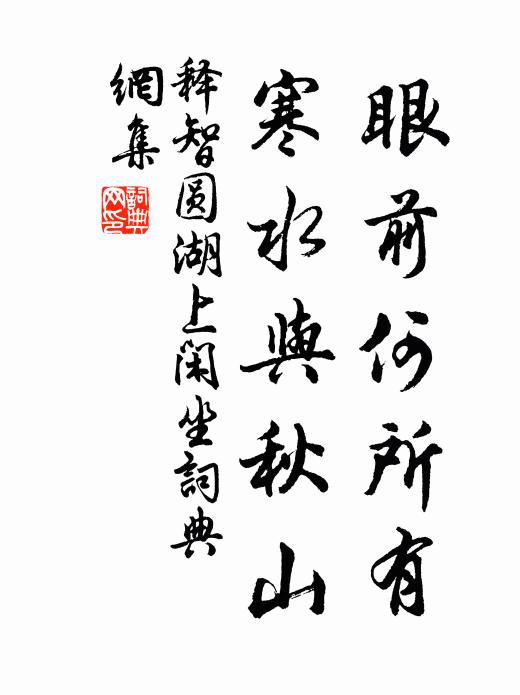 眼前何所有
寒水與秋山
释智圆湖上闲坐詞典
網集
詞典
网印